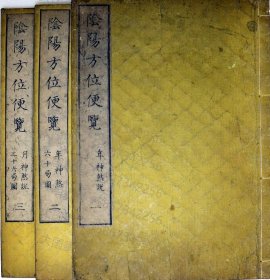 陰陽方位便覧
年神煞説
一
陰陽方位便覧
年神煞
六十局圖
二
陰陽方位便覧
月神煞説
三